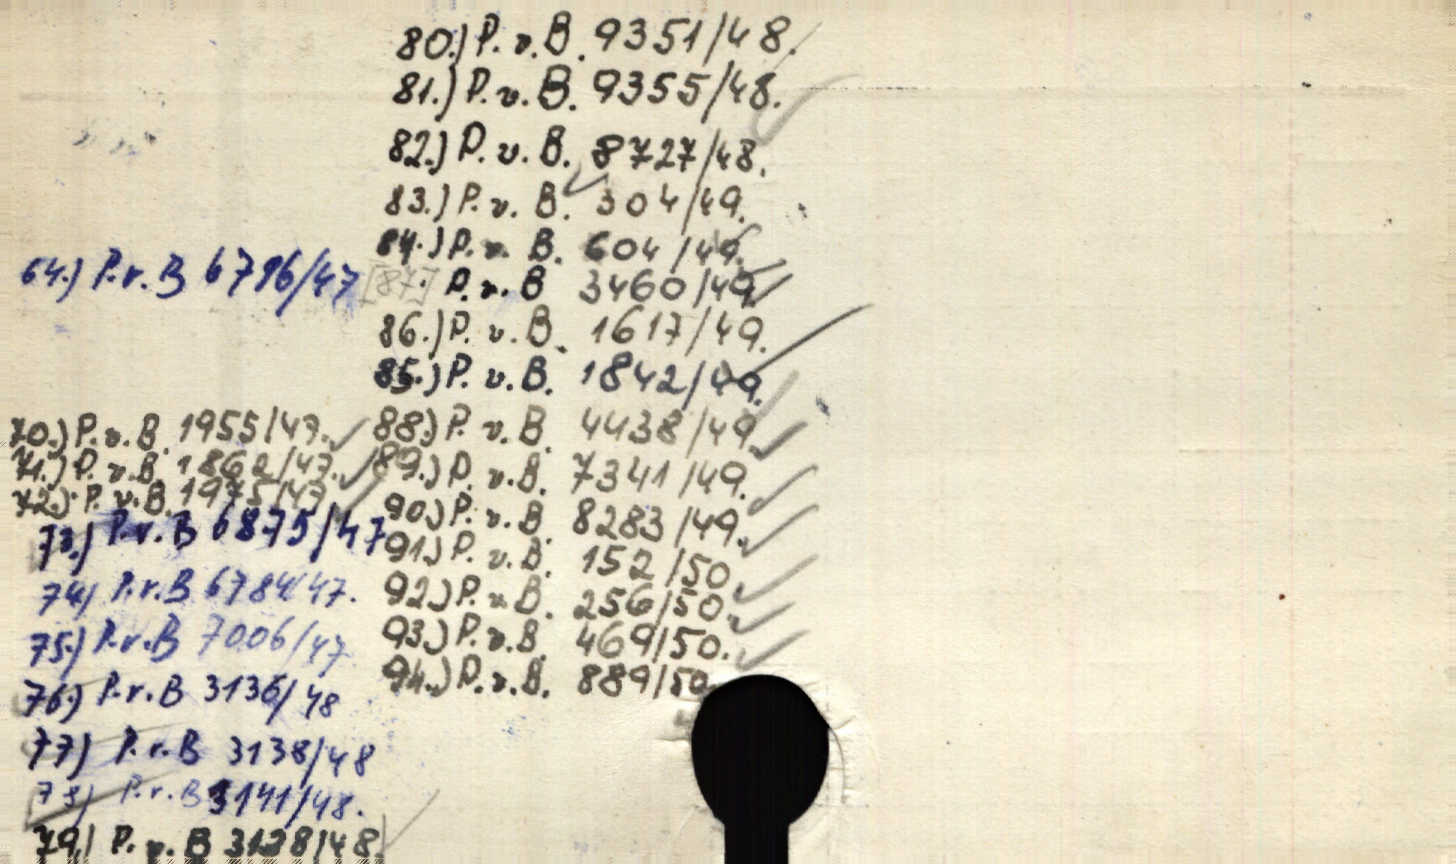 64.) P.v.B 6796/47
70.) P.v.B. 1955/47.
71.) P.v.B. 1862/47.
72.) P.v.B. 1975/47.
73.) P.v.B 6875/47
74) P.v.B 6784/47.
75) P.v.B 7006/47
76) P.v.B 3136/48
77) P.v.B 3138/48
78) P.v.B 3141/48.
79.) P.v.B 3128/48
80.) P.v.B. 9351/48.
81.) P.v.B. 9355/48.
82.) P.v.B. 8727/48.
83.) P.v.B. 304/49.
84.) P.v.B. 604/49.
[87] P.v.B 3460/49
86.) P.v.B. 1617/49.
85.) P.v.B. 1842/49.
88.) P.v.B. 4438/49.
89.) P.v.B. 7341/49.
90.) P.v.B. 8283/49.
91.) P.v.B. 152/50.
92.) P.v.B. 256/50.
93.) P.v.B. 469/50.
94.) P.v.B. 889/50.